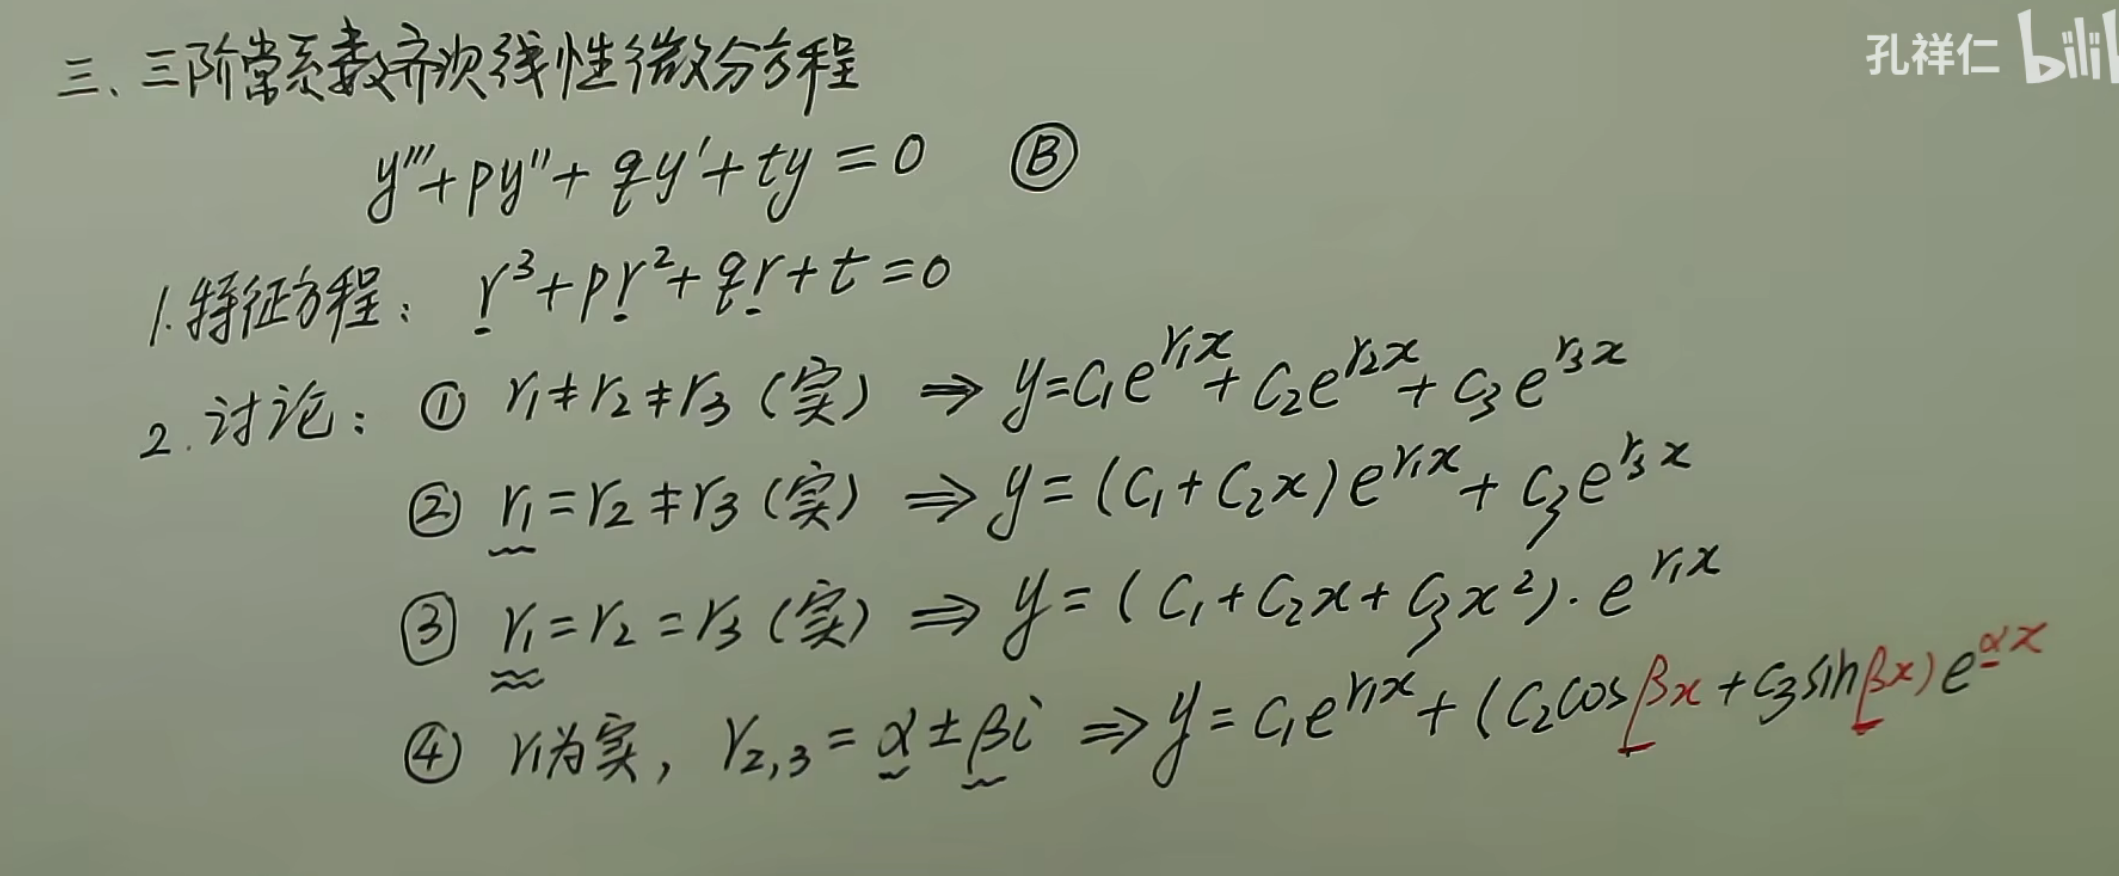 孔祥仁 bilil
三、三阶常系数齐次线性微分方程
y'''+py''+qy'+ty=0 Ⓑ
1.特征方程：r³+pr²+qr+t=0
2.讨论：① r₁≠r₂≠r₃（实）⇒ y=C₁e^{r₁x}+C₂e^{r₂x}+C₃e^{r₃x}
② r₁=r₂≠r₃（实）⇒ y=(C₁+C₂x)e^{r₁x}+C₃e^{r₃x}
③ r₁=r₂=r₃（实）⇒ y=(C₁+C₂x+C₃x²)·e^{r₁x}
④ r₁为实，r₂,₃=α±βi ⇒ y=C₁e^{r₁x}+(C₂cosβx+C₃sinβx)e^{αx}